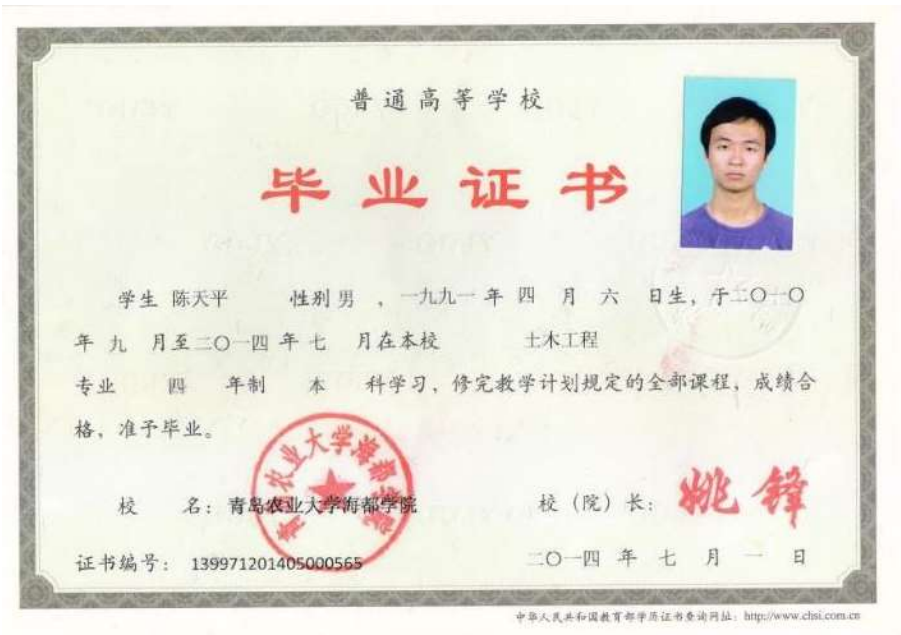 普通高等学校
毕业证书
学生 陈天平 性别 男 ，一九九一 年 四 月 六 日生，于二〇一〇
年 九 月至二〇一四 年 七 月在本校 土木工程
专业 四 年制 本 科学习，修完教学计划规定的全部课程，成绩合
格，准予毕业。
青岛农业大学海都学院
校 名：青岛农业大学海都学院
校（院）长：姚锋
证书编号：139971201405000565
二〇一四 年 七 月 一 日
中华人民共和国教育部学历证书查询网址：http://www.chsi.com.cn